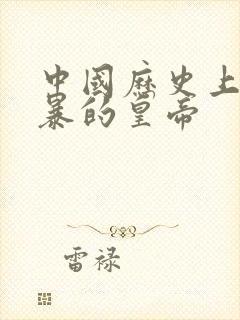 中國歷史上
暴的皇帝
雷禄